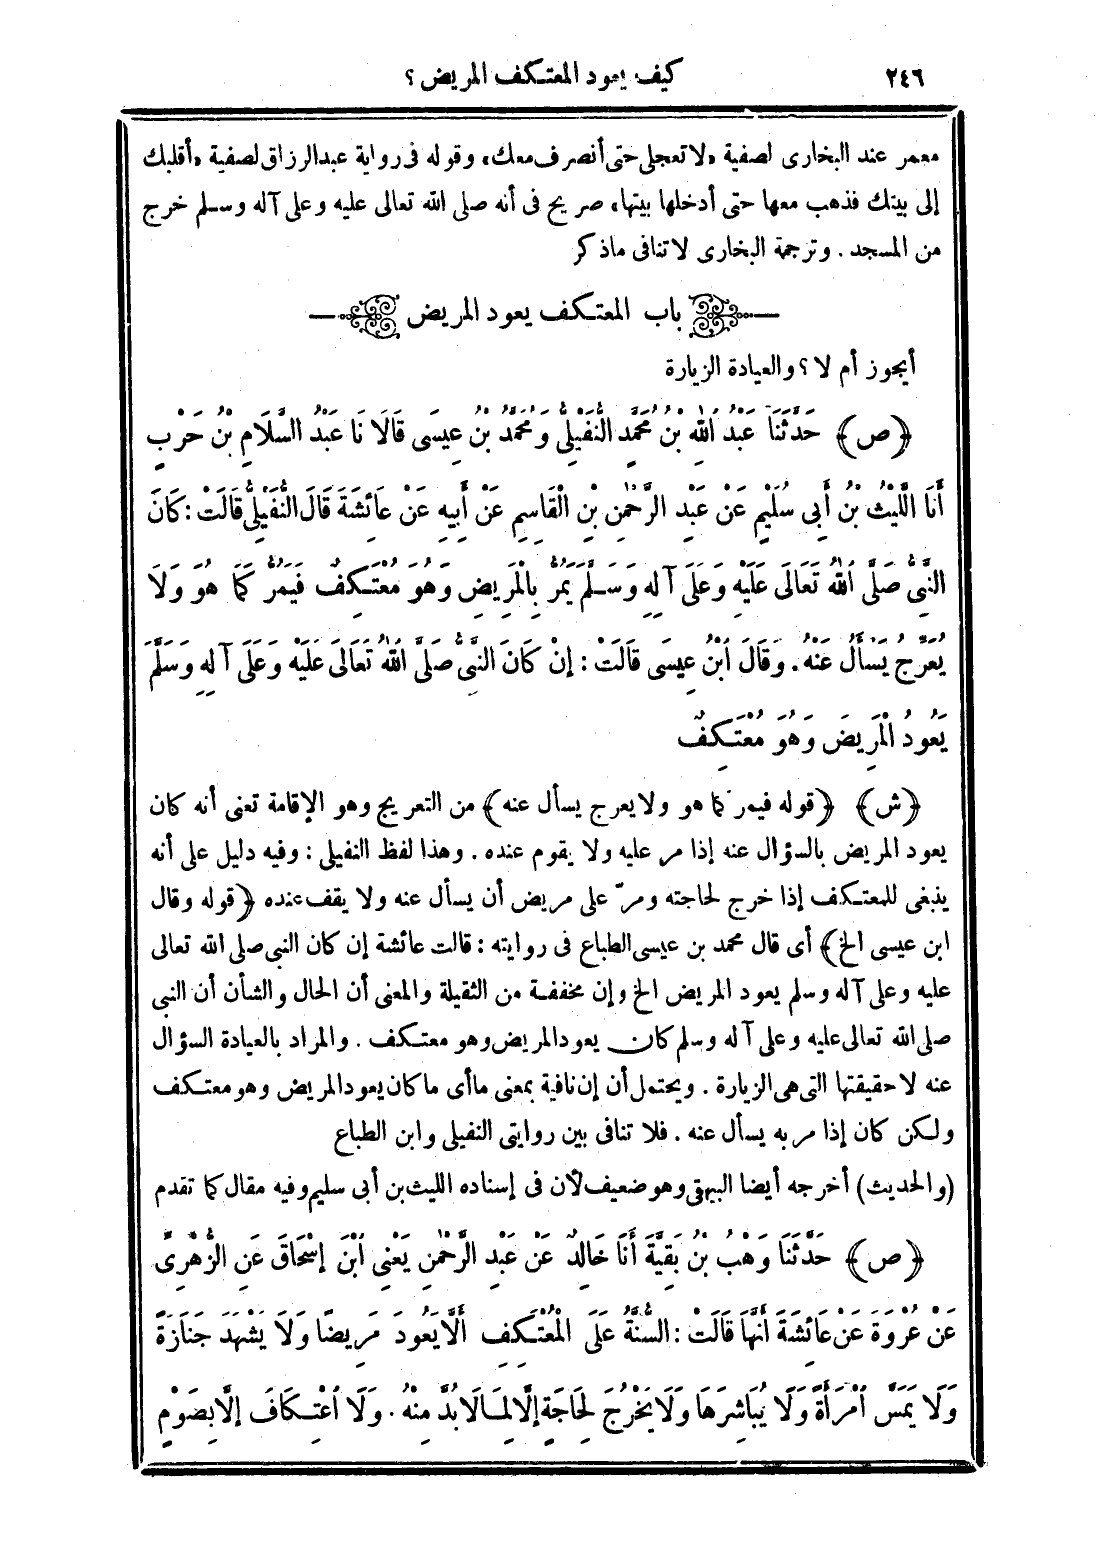 ٢٤٦
كيف يعود المعتكف المريض ؟
معمر عند البخارى لصفية «لا تعجلى حتى أنصرف معك» وقوله فى رواية عبد الرزاق لصفية «أقلبك
إلى بيتك فذهب معها حتى أدخلها بيتها» صريح فى أنه صلى الله تعالى عليه وعلى آله وسلم خرج
من المسجد . وترجمة البخارى لا تنافى ماذكر
باب المعتكف يعود المريض
أيجوز أم لا ؟ والعيادة الزيارة
﴿ص﴾ حَدَّثَنَا عَبْدُ اللهِ بْنُ مُحَمَّدٍ النُّفَيْلِىُّ وَمُحَمَّدُ بْنُ عِيسَى قَالَا نَا عَبْدُ السَّلَامِ بْنُ حَرْبٍ
أَنَا اللَّيْثُ بْنُ أَبِى سُلَيْمٍ عَنْ عَبْدِ الرَّحْمٰنِ بْنِ الْقَاسِمِ عَنْ أَبِيهِ عَنْ عَائِشَةَ قَالَ النُّفَيْلِىُّ قَالَتْ : كَانَ
النَّبِىُّ صَلَّى اللهُ تَعَالَى عَلَيْهِ وَعَلَى آلِهِ وَسَلَّمَ يَمُرُّ بِالْمَرِيضِ وَهُوَ مُعْتَكِفٌ فَيَمُرُّ كَمَا هُوَ وَلَا
يُعَرِّجُ يَسْأَلُ عَنْهُ . وَقَالَ ابْنُ عِيسَى قَالَتْ : إِنْ كَانَ النَّبِىُّ صَلَّى اللهُ تَعَالَى عَلَيْهِ وَعَلَى آلِهِ وَسَلَّمَ
يَعُودُ الْمَرِيضَ وَهُوَ مُعْتَكِفٌ
﴿ش﴾ ﴿قوله فيمر كما هو ولا يعرج يسأل عنه﴾ من التعريج وهو الإقامة تعنى أنه كان
يعود المريض بالسؤال عنه إذا مر عليه ولا يقوم عنده . وهذا لفظ النفيلى : وفيه دليل على أنه
ينبغى للمعتكف إذا خرج لحاجته ومرّ على مريض أن يسأل عنه ولا يقف عنده ﴿قوله وقال
ابن عيسى الخ﴾ أى قال محمد بن عيسى الطباع فى روايته : قالت عائشة إن كان النبى صلى الله تعالى
عليه وعلى آله وسلم يعود المريض الخ وإن مخففة من الثقيلة والمعنى أن الحال والشأن أن النبى
صلى الله تعالى عليه وعلى آله وسلم كان يعود المريض وهو معتكف . والمراد بالعيادة السؤال
عنه لا حقيقتها التى هى الزيارة . ويحتمل أن إن نافية بمعنى ما أى ما كان يعود المريض وهو معتكف
ولكن كان إذا مر به يسأل عنه . فلا تنافى بين روايتى النفيلى وابن الطباع
(والحديث) أخرجه أيضا البيهقى وهو ضعيف لأن فى إسناده الليث بن أبى سليم وفيه مقال كما تقدم
﴿ص﴾ حَدَّثَنَا وَهْبُ بْنُ بَقِيَّةَ أَنَا خَالِدٌ عَنْ عَبْدِ الرَّحْمٰنِ يَعْنِى ابْنَ إِسْحَاقَ عَنِ الزُّهْرِىِّ
عَنْ عُرْوَةَ عَنْ عَائِشَةَ أَنَّهَا قَالَتْ : السُّنَّةُ عَلَى الْمُعْتَكِفِ أَلَّا يَعُودَ مَرِيضًا وَلَا يَشْهَدَ جَنَازَةً
وَلَا يَمَسَّ امْرَأَةً وَلَا يُبَاشِرَهَا وَلَا يَخْرُجَ لِحَاجَةٍ إِلَّا لِمَا لَا بُدَّ مِنْهُ . وَلَا اعْتِكَافَ إِلَّا بِصَوْمٍ